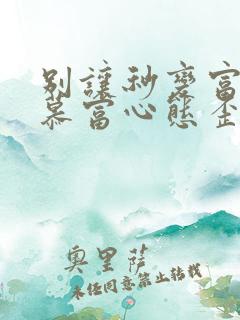 別讓秒變富
慕富心態歪
奧里薩
未經同意禁止轉載